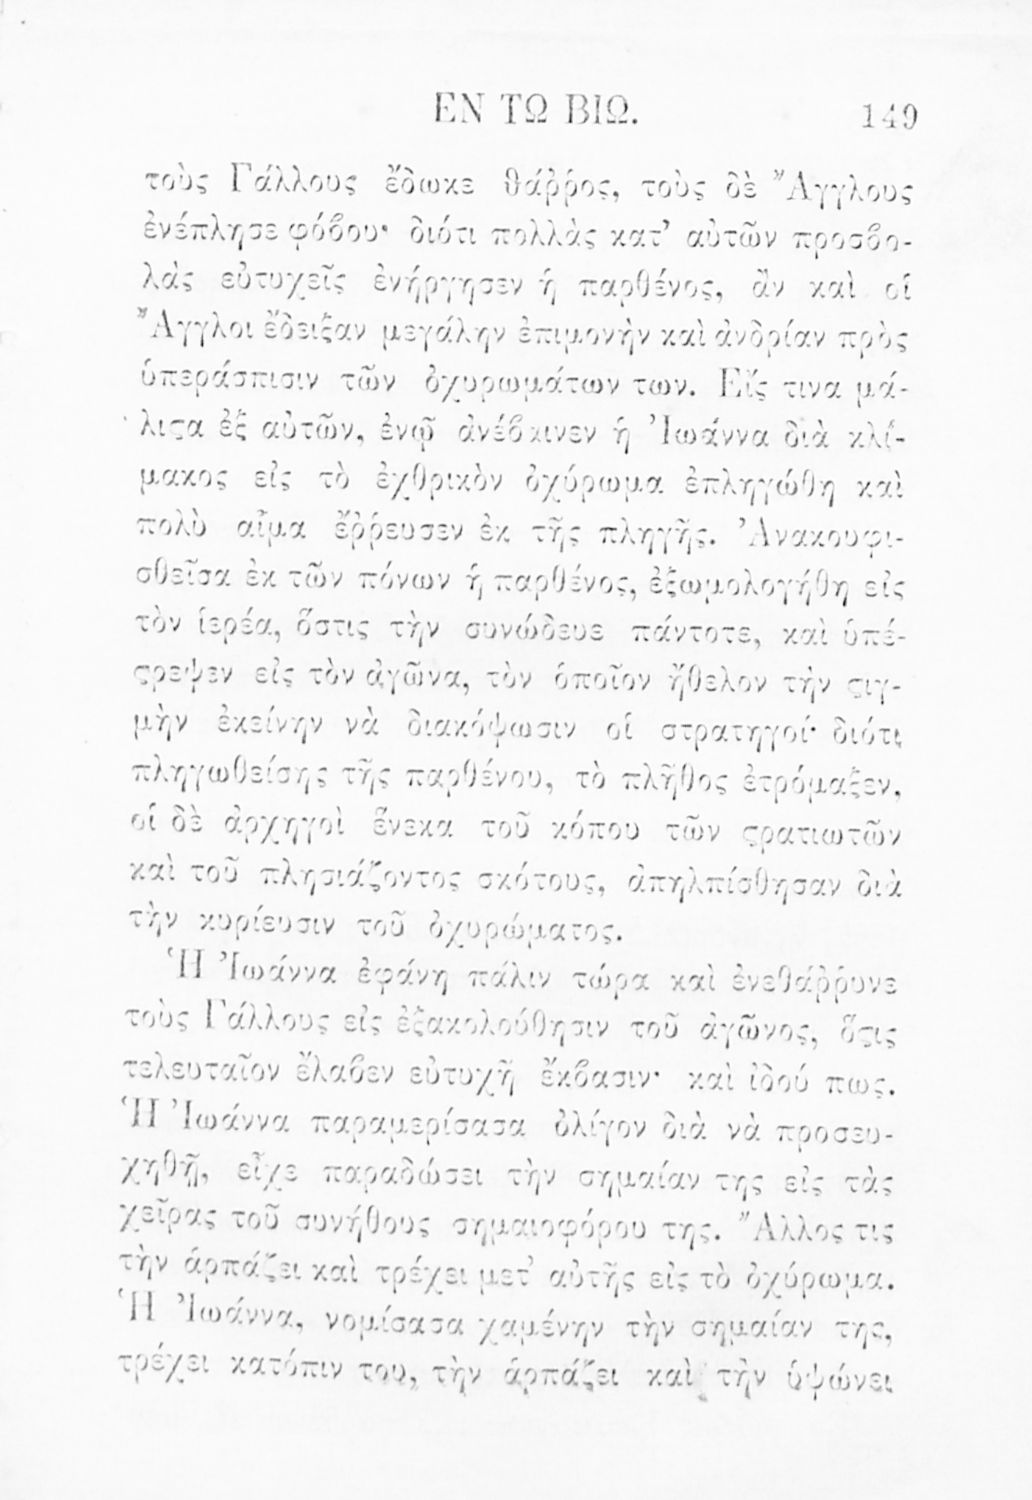 ΕΝ ΤΩ ΒΙΩ. 149
τοὺς Γάλλους ἔδωκε θάῤῥος, τοὺς δὲ Ἄγγλους
ἐνέπλησε φόβου· διότι πολλὰς κατ’ αὐτῶν προσβο-
λὰς εὐτυχεῖς ἐνήργησεν ἡ παρθένος, ἂν καὶ οἱ
Ἄγγλοι ἔδειξαν μεγάλην ἐπιμονὴν καὶ ἀνδρίαν πρὸς
ὑπεράσπισιν τῶν ὀχυρωμάτων των. Εἴς τινα μά-
λιϛα ἐξ αὐτῶν, ἐνῷ ἀνέβαινεν ἡ Ἰωάννα διὰ κλί-
μακος εἰς τὸ ἐχθρικὸν ὀχύρωμα ἐπληγώθη καὶ
πολὺ αἷμα ἔῤῥευσεν ἐκ τῆς πληγῆς. Ἀνακουφι-
σθεῖσα ἐκ τῶν πόνων ἡ παρθένος, ἐξωμολογήθη εἰς
τὸν ἱερέα, ὅστις τὴν συνώδευε πάντοτε, καὶ ὑπέ-
ϛρεψεν εἰς τὸν ἀγῶνα, τὸν ὁποῖον ἤθελον τὴν ϛιγ-
μὴν ἐκείνην νὰ διακόψωσιν οἱ στρατηγοί· διότι
πληγωθείσης τῆς παρθένου, τὸ πλῆθος ἐτρόμαξεν,
οἱ δὲ ἀρχηγοὶ ἕνεκα τοῦ κόπου τῶν ϛρατιωτῶν
καὶ τοῦ πλησιάζοντος σκότους, ἀπηλπίσθησαν διὰ
τὴν κυρίευσιν τοῦ ὀχυρώματος.
Ἡ Ἰωάννα ἐφάνη πάλιν τώρα καὶ ἐνεθάῤῥυνε
τοὺς Γάλλους εἰς ἐξακολούθησιν τοῦ ἀγῶνος, ὅϛις
τελευταῖον ἔλαβεν εὐτυχῆ ἔκβασιν· καὶ ἰδού πως.
Ἡ Ἰωάννα παραμερίσασα ὀλίγον διὰ νὰ προσευ-
χηθῇ, εἶχε παραδώσει τὴν σημαίαν της εἰς τὰς
χεῖρας τοῦ συνήθους σημαιοφόρου της. Ἄλλος τις
τὴν ἁρπάζει καὶ τρέχει μετ’ αὐτῆς εἰς τὸ ὀχύρωμα.
Ἡ Ἰωάννα, νομίσασα χαμένην τὴν σημαίαν της,
τρέχει κατόπιν του, τὴν ἁρπάζει καὶ τὴν ὑψώνει